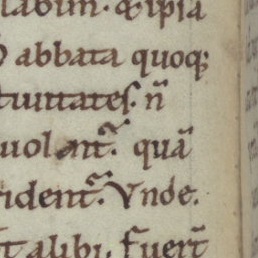 labun. & ipsa
abbata quoq;
tiuitates. n̄
uolant. quā
ident. Vnde.
alibi. Fuert̄